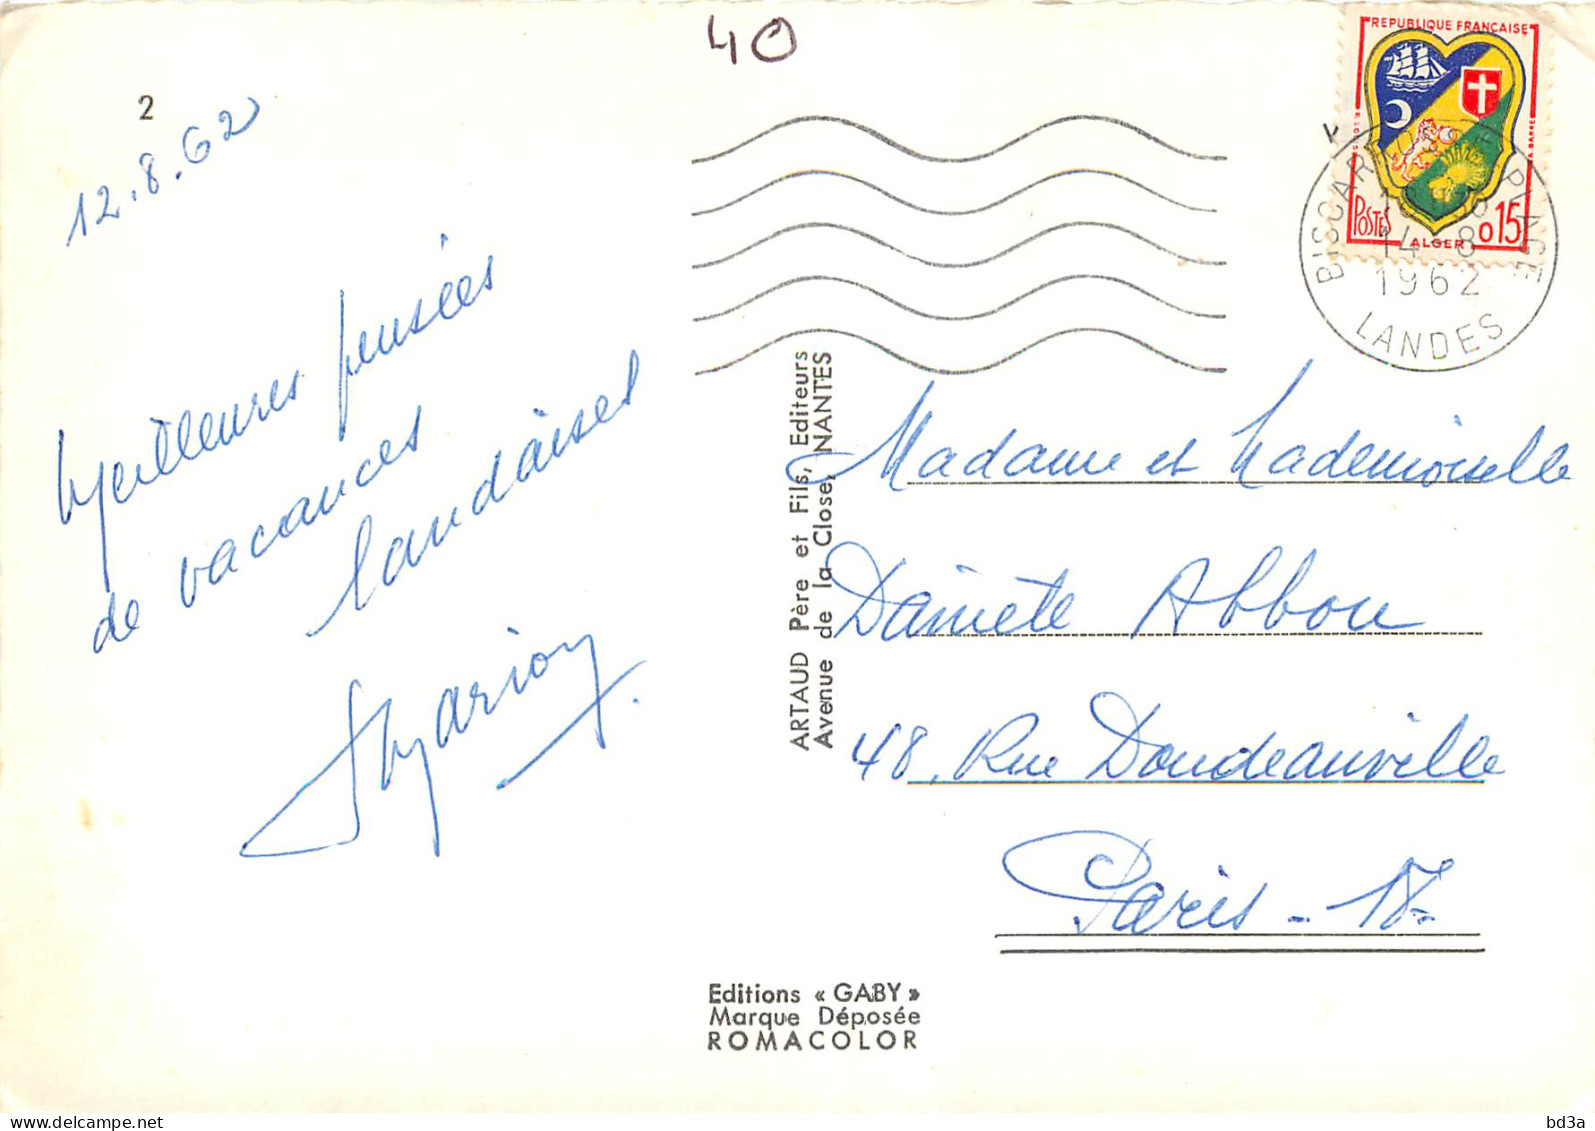 40
2
12.8.62
Meilleures pensées
de vacances
landaises
Marion
REPUBLIQUE FRANÇAISE
POSTES
ALGER
0,15
BISCARROSSE PLAGE
14-8
1962
LANDES
ARTAUD Père et Fils, Editeurs
Avenue de la Close, NANTES
Madame et Mademoiselle
Danièle Abbou
48, Rue Doudeauville
Paris - 18
Editions « GABY »
Marque Déposée
ROMACOLOR
delcampe.net
bd3a